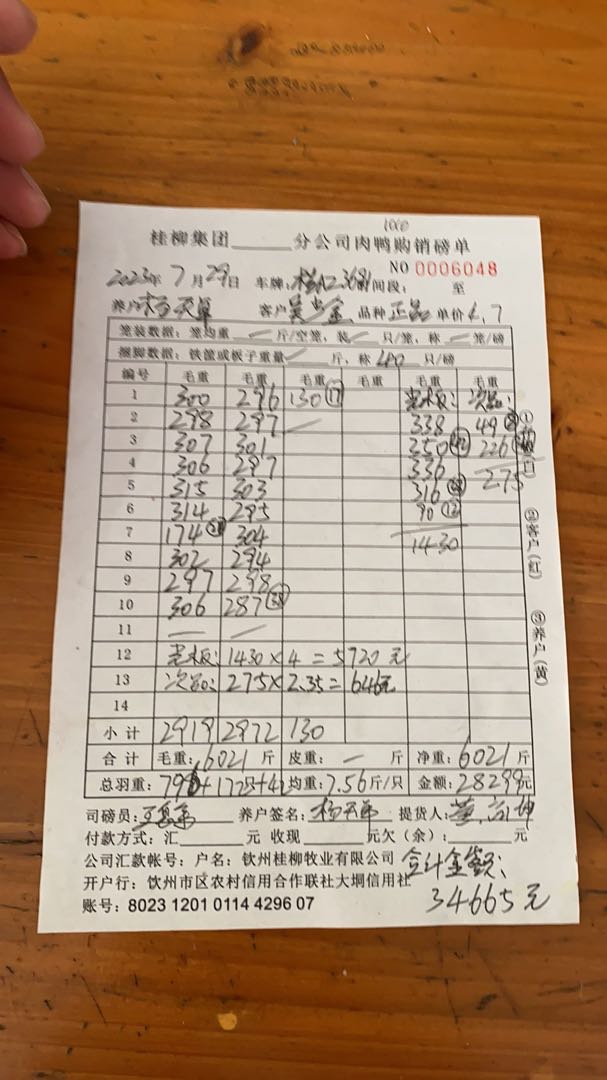 1000
桂柳集团______分公司肉鸭购销磅单
NO 0006048
2023年 7月29日 车牌: 间段: 至
养户 客户 品种 正品 单价 4.7
笼装数据: 笼均重 — 斤/空笼, 装 — 只/笼, 称 — 笼/磅
捆脚数据: 铁筐或板子重量 斤, 称 只/磅
编号 毛重 毛重 毛重 毛重 毛重 毛重
1 300 296 130 ⑰ 次品:
2 298 297 — 338 49
3 307 301 350 226
4 306 297 336
5 315 303 316 275
6 314 295 90 ⑫
7 174 304 1430
8 302 294
9 297 298
10 306 287
11 — —
12 1430×4=5720元
13 次品: 275×2.35=646元
14
小计 2919 2972 130
合计 毛重: 6021 斤 皮重: — 斤 净重: 6021 斤
总羽重: 均重: 7.56斤/只 金额: 28299元
司磅员: 养户签名: 提货人:
付款方式: 汇______元 收现______元欠(余): ______元
公司汇款帐号: 户名: 钦州桂柳牧业有限公司 合计金额:
开户行: 钦州市区农村信用合作联社大垌信用社 34665元
账号: 8023 1201 0114 4296 07
②客户(红)
③养户(黄)